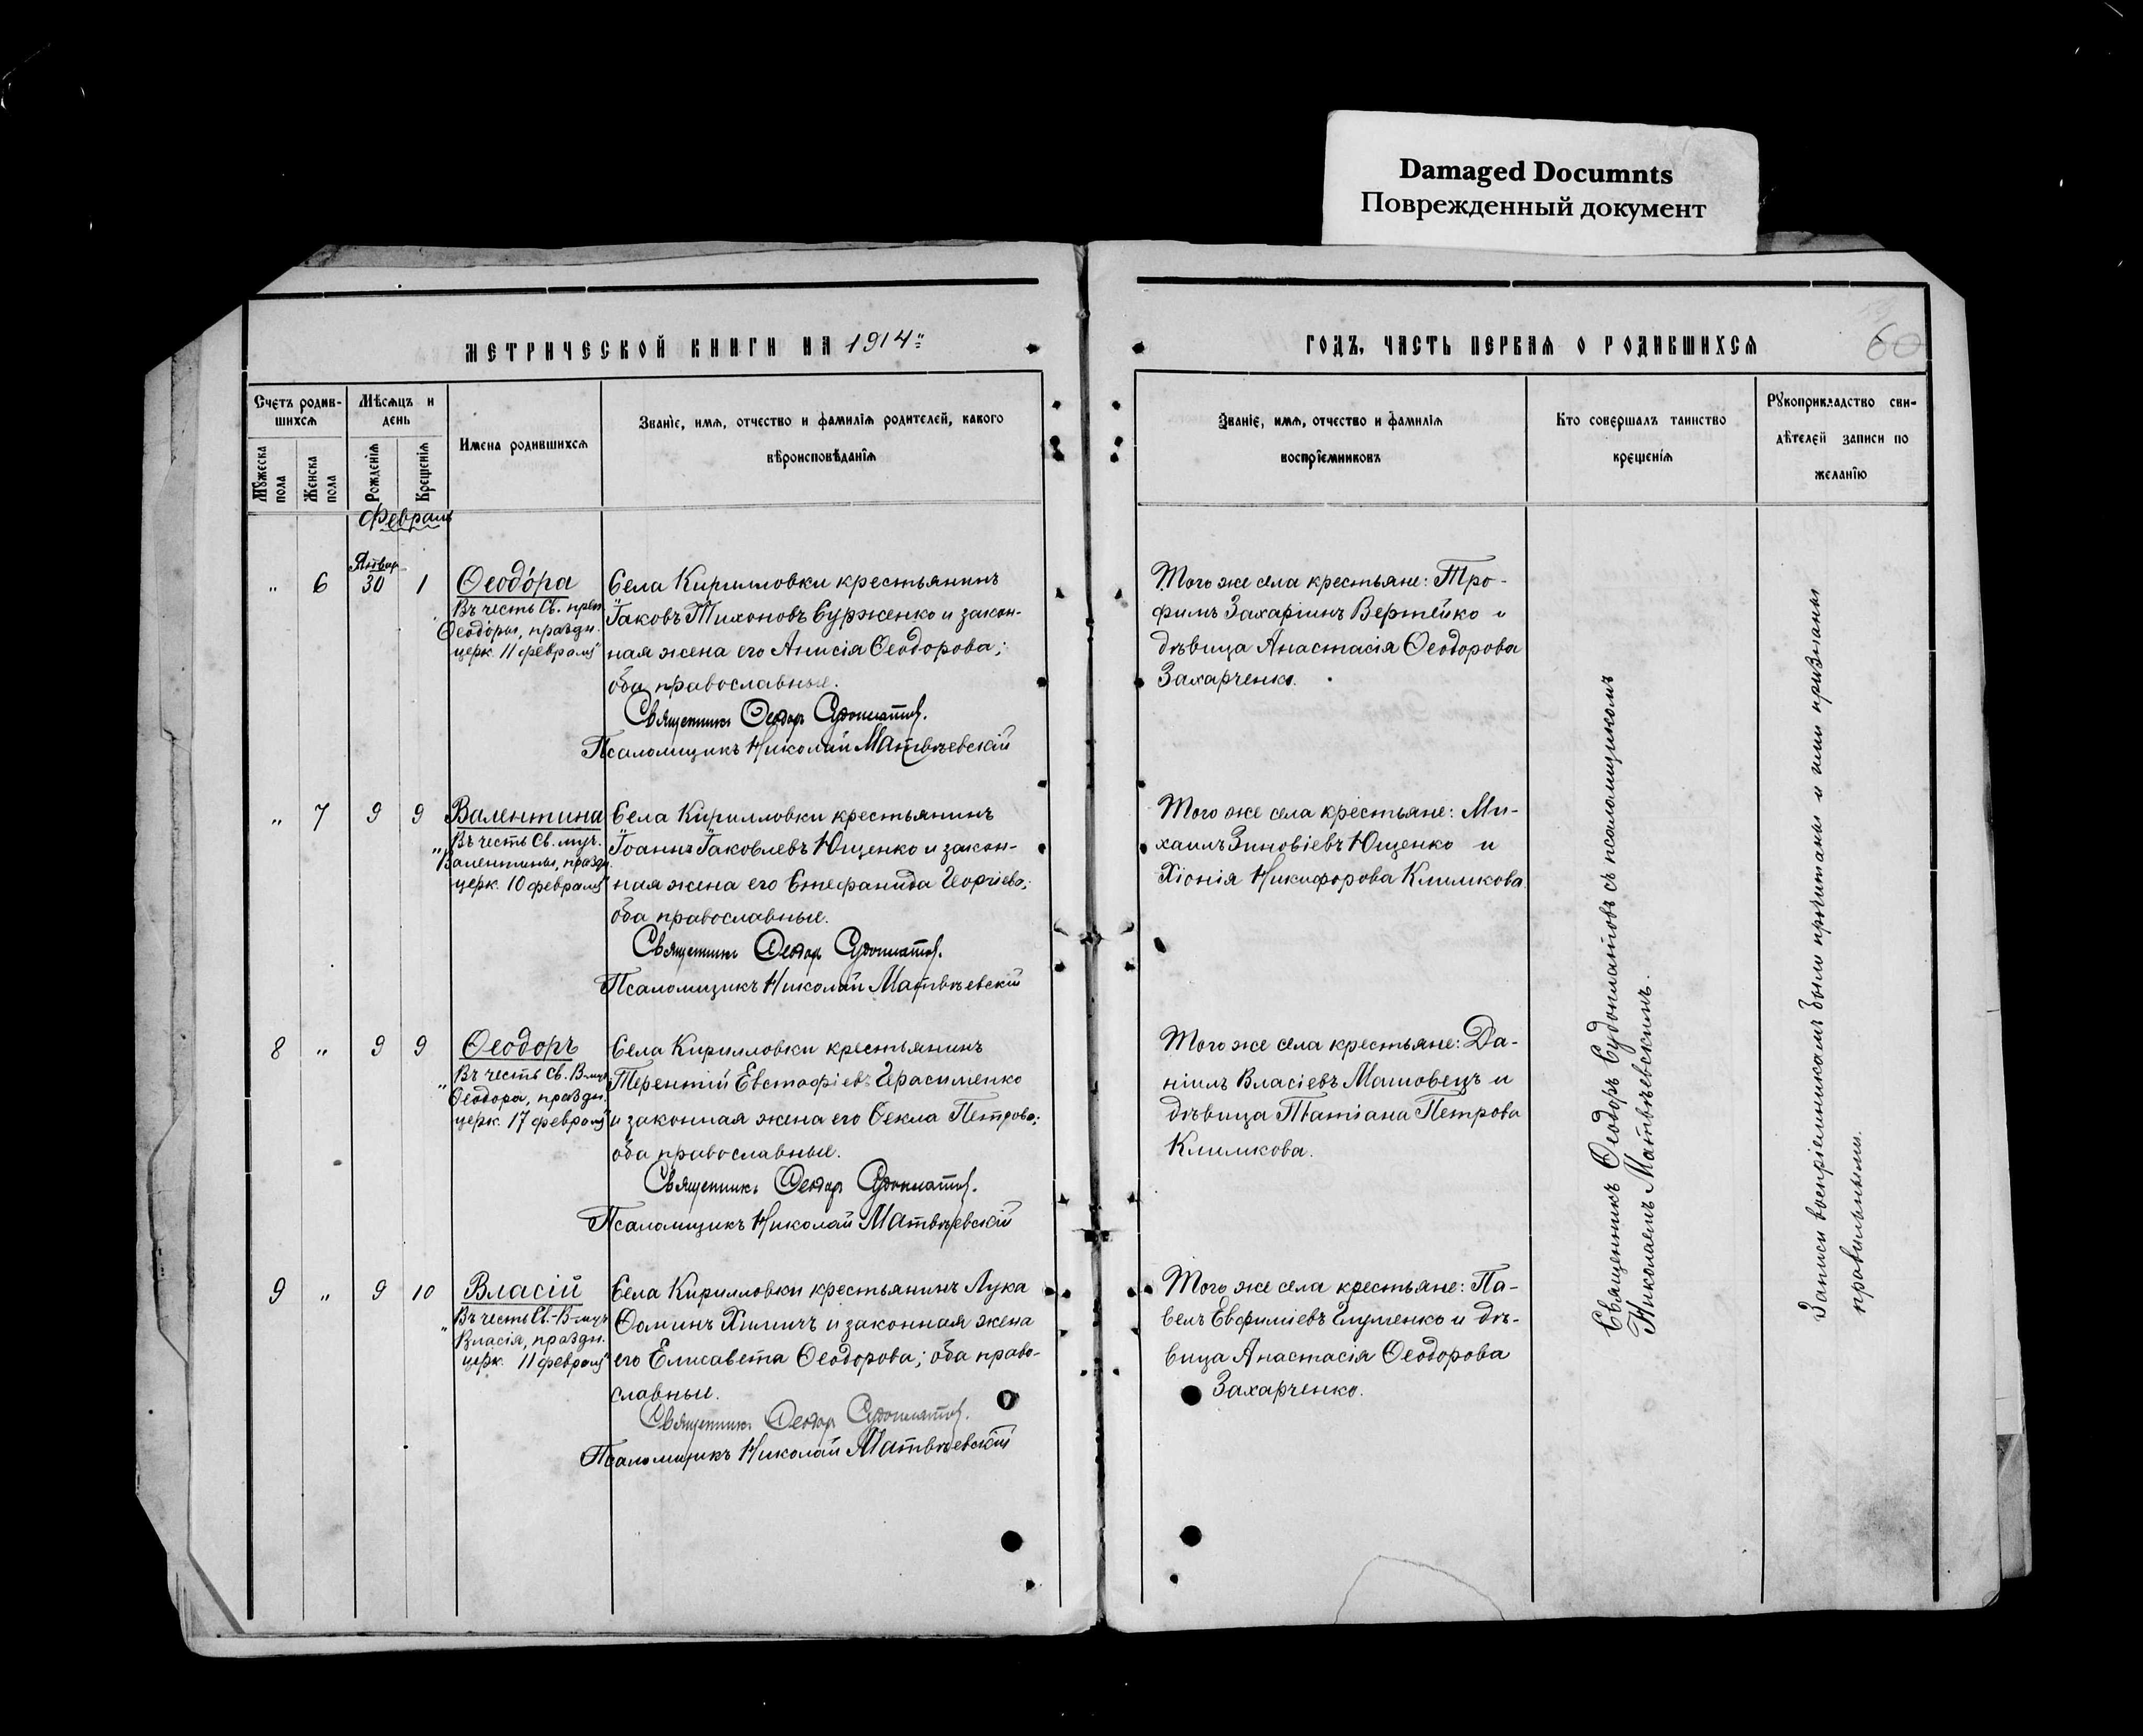 Damaged Documnts
Поврежденный документ
МЕТРИЧЕСКОЙ КНИГИ НА 1914
ГОДЪ, ЧАСТЬ ПЕРВАЯ О РОДИВШИХСЯ
60
Счетъ родив-
шихся
Мужеска пола
Женска пола
Мѣсяцъ и
день
Рожденія
Крещенія
Имена родившихся
Званіе, имя, отчество и фамилія родителей, какого
вѣроисповѣданія
Званіе, имя, отчество и фамилія
воспріемниковъ
Кто совершалъ таинство
крещенія
Рукоприкладство сви-
дѣтелей записи по
желанію
Февраль
Январ.
" 6 30 1
Ѳеодо́ра
Въ честь Св. преп.
Ѳеодо́ры, праздн.
церк. 11 февраля"
Села Кирилловки крестьянинъ
Іаковъ Тихоновъ Сурженко и закон-
ная жена его Анисія Ѳеодорова;
оба православные.
Священникъ Ѳеодоръ Судоплатов.
Псаломщикъ Николай Матвѣевскій
Того же села крестьяне: Тро-
фимъ Захаріинъ Вертейко и
дѣвица Анастасія Ѳеодорова
Захарченко.
" 7 9 9
Валентина
Въ честь Св. муч.
Валентины, праздн.
церк. 10 февраля"
Села Кирилловки крестьянинъ
Іоаннъ Іаковлевъ Ющенко и закон-
ная жена его Стефанида Георгіева;
оба православные.
Священникъ Ѳеодоръ Судоплатов.
Псаломщикъ Николай Матвѣевскій
Того же села крестьяне: Ми-
хаилъ Зиновіевъ Ющенко и
Хіонія Никифорова Климкова.
8 " 9 9
Ѳеодоръ
Въ честь Св. В-муч.
Ѳеодора, праздн.
церк. 17 февраля"
Села Кирилловки крестьянинъ
Терентій Евстафіевъ Герасименко
и законная жена его Ѳекла Петрова;
оба православные.
Священникъ Ѳеодоръ Судоплатов.
Псаломщикъ Николай Матвѣевскій
Того же села крестьяне: Да-
ніилъ Власіевъ Машовецъ и
дѣвица Татіана Петрова
Климкова.
9 " 9 10
Власій
Въ честь Св.-В-муч.
Власія, праздн.
церк. 11 февраля"
Села Кирилловки крестьянинъ Лука
Ѳоминъ Химичъ и законная жена
его Елисавета Ѳеодорова; оба право-
славные.
Священникъ Ѳеодоръ Судоплатов.
Псаломщикъ Николай Матвѣевскій
Того же села крестьяне: Па-
велъ Евфиміевъ Глущенко и дѣ-
вица Анастасія Ѳеодорова
Захарченко.
Священникъ Ѳеодоръ Судоплатовъ съ псаломщикомъ
Николаемъ Матвѣевскимъ.
Записи воспріемникамъ были прочитаны и ими признаны
правильными.